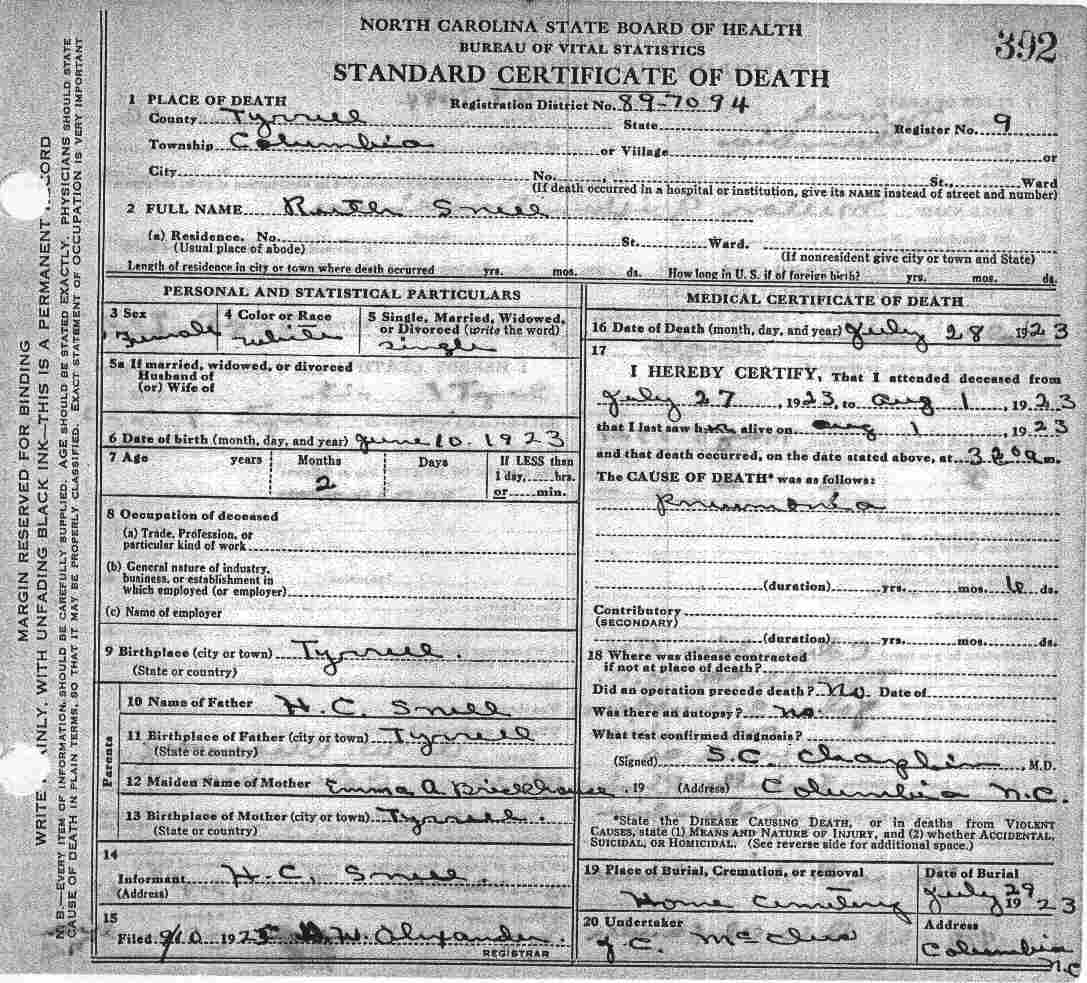 NORTH CAROLINA STATE BOARD OF HEALTH
BUREAU OF VITAL STATISTICS
392
STANDARD CERTIFICATE OF DEATH
1 PLACE OF DEATH Registration District No. 89-7094
County Tyrrell State Register No. 9
Township Columbia or Village or
City No. St., Ward
(If death occurred in a hospital or institution, give its NAME instead of street and number)
2 FULL NAME Ruth Snell
(a) Residence. No. St. Ward.
(Usual place of abode) (If nonresident give city or town and State)
Length of residence in city or town where death occurred yrs. mos. ds. How long in U. S. if of foreign birth? yrs. mos. ds.
PERSONAL AND STATISTICAL PARTICULARS
3 Sex 4 Color or Race 5 Single, Married, Widowed, or Divorced (write the word)
Female White Single
5a If married, widowed, or divorced
Husband of
(or) Wife of
6 Date of birth (month, day, and year) June 10. 1923
7 Age years Months Days If LESS than
1 day,......hrs.
2
or......min.
8 Occupation of deceased
(a) Trade, Profession, or
particular kind of work
(b) General nature of industry,
business, or establishment in
which employed (or employer)
(c) Name of employer
9 Birthplace (city or town) Tyrrell.
(State or country)
Parents
10 Name of Father H. C. Snell
11 Birthplace of Father (city or town) Tyrrell
(State or country)
12 Maiden Name of Mother Emma A Brickhouse
13 Birthplace of Mother (city or town) Tyrrell.
(State or country)
14
Informant H. C. Snell.
(Address)
15
Filed 9/10 192 W. Alexander.
REGISTRAR
MEDICAL CERTIFICATE OF DEATH
16 Date of Death (month, day, and year) July 28 1923
17
I HEREBY CERTIFY, That I attended deceased from
July 27, 1923, to Aug 1, 1923
that I last saw h alive on Aug 1, 1923
and that death occurred, on the date stated above, at m.
The CAUSE OF DEATH* was as follows:
Pneumonia
(duration) yrs. mos. 6 ds.
Contributory
(SECONDARY)
(duration) yrs. mos. ds.
18 Where was disease contracted
if not at place of death?
Did an operation precede death? No. Date of
Was there an autopsy? no.
What test confirmed diagnosis?
(Signed) S. C. Chaplin, M.D.
, 19 (Address) Columbia N.C.
*State the DISEASE CAUSING DEATH, or in deaths from VIOLENT
CAUSES, state (1) MEANS AND NATURE OF INJURY, and (2) whether ACCIDENTAL,
SUICIDAL, OR HOMICIDAL. (See reverse side for additional space.)
19 Place of Burial, Cremation, or removal Date of Burial
Home Cemetery July 29 1923
20 Undertaker Address
J C. Columbia N.C
MARGIN RESERVED FOR BINDING
WRITE AINLY, WITH UNFADING BLACK INK—THIS IS A PERMANENT RECORD
N. B.—EVERY ITEM OF INFORMATION SHOULD BE CAREFULLY SUPPLIED. AGE SHOULD BE STATED EXACTLY. PHYSICIANS SHOULD STATE
CAUSE OF DEATH IN PLAIN TERMS, SO THAT IT MAY BE PROPERLY CLASSIFIED. EXACT STATEMENT OF OCCUPATION IS VERY IMPORTANT